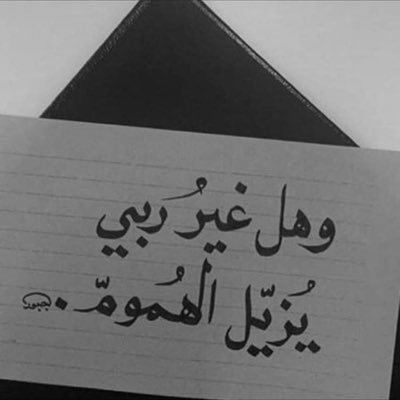 وهل غيرُ ربي
يُزيّل الهُمومّ.